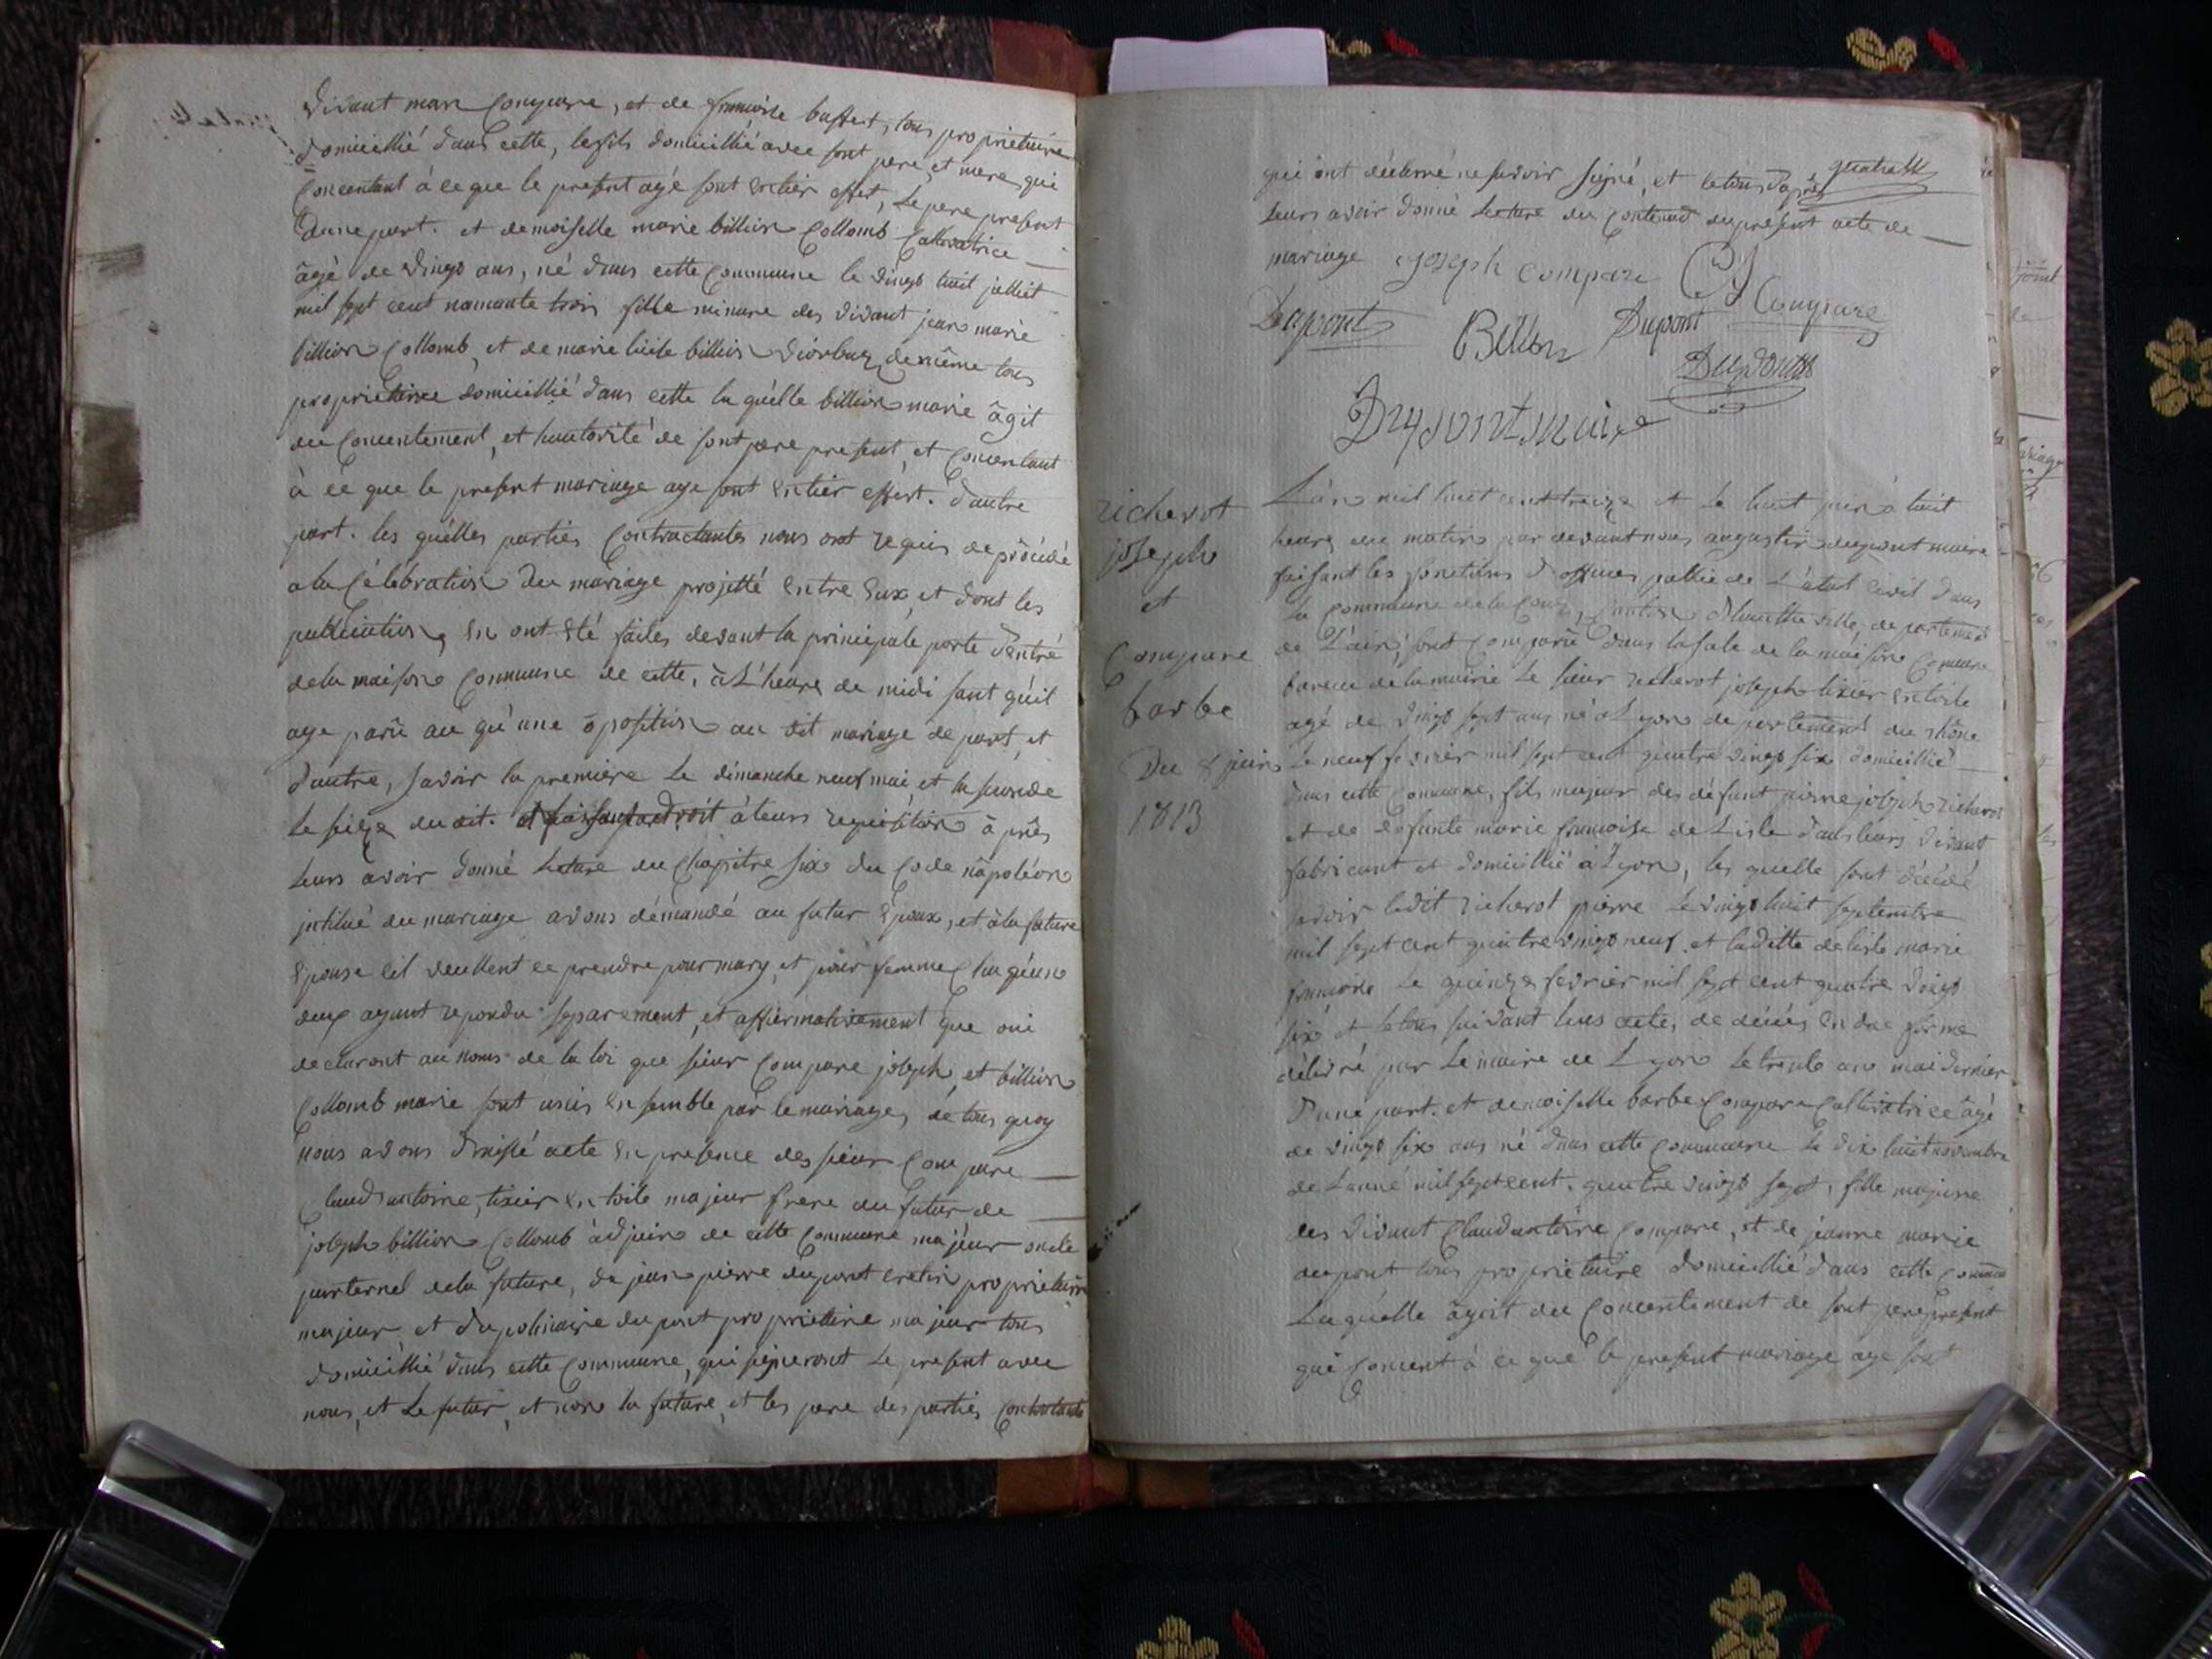 vivant marc Compare, et de francoise buffert, tous proprietaire
domicillié dans cette, le fils domicillié avec sont pere, et mere, qui
Concentant à ce que le present agé sont entier effet, Le pere present
dune part. et demoiselle marie billion Collomb Cultivatrice
âgé de vingt ans, né dans cette Commune le vingt huit juillet
mil sept cent nonante trois fille minure des vivant jean marie
billion Collomb, et de marie billion de même tous
proprietaire domicillié dans cette la quélle billion marie âgit
du Concentement, et hautorité de sont pere present, et Concentant
à ce que le present mariage aye sont entier effert. d'autre
part. les quélles parties Contractantes nous ont requis de procédé
a la Célébration du mariage projetté entre Eux, et dont les
publication en ont Eté faites devant la principale porte d'entré
de la maison Commune de cette, à L'heure de midi sant qu'il
aye parû au qu'une ôposition au dit mariage de part, et
d'autre, savoir la premiere Le dimanche neuf mai, et la seconde
Le seize du dit. et faisant droit à leurs requisition à près
Leurs avoir donné Lecture du Chapitre six du Code nâpoléon
intitué du mariage avons démandé au futur Epoux, et à la future
Epouse s'il veullent ce prendre pour mary, et pour femme Cha qu'un
deux ayant repondu separement, et affirmativement que oui
declaront au noms de la loi que sieur Compare joseph, et billion
Collomb marie sont unis ensemble par le mariage, de tous quoy
nous avons dréssé acte en presence des sieur Compare
Claud antoine, tixier en toile majeur frere du futur de
joseph billion Collomb adjoin de cette Commune majeur oncle
parternel de la future, de jean pierre dupont cretin proprietaire
majeur et d'apolinaire dupont proprietaire majeur tous
domicillié dans cette Commune, qui signeront Le present avec
nous, et Le futur, et non la future, et les pere des parties Contractante
qui ont déclarré ne savoir signé, et le tous d'après
Leurs avoir donné Lecture du Contenu du present acte de
mariage Joseph compare Compare
Dupont Billion Dupont
Dupont
Dupont maire
richerot
joseph
et
Compare
barbe
Du 8 juin
1813
L'an mil huit cent treize et le huit juin à huit
heures du matin par devant nous augustin dupont maire
faisant les fonctions d'officier public de L'état civil dans
la Commune de la Coux, Canton d'hautteville, departement
de L'ain, sont Comparû dans la sale de la maison Comune
bureau de la mairie Le sieur richerot joseph tixier en toile
agé de vingt sept ans né à Lyon departement du rhône
Le neuf fevrier mil sept cent quatre vingt six domicillié
dans cette Commune, fils majeur des défunt pierre joseph richerot
et de defunte marie francoise de Lisle dans leurs vivant
fabricant et domicillié à Lyon, les quelle sont décédé
savoir ledit richerot pierre Le vingt huit septembre
mil sept cent quatre vingt neuf. et laditte delisle marie
francoise Le quinze fevrier mil sept cent quatre vingt
six et le tous suivant leurs acte, de décès en due forme
délivré par Le maire de Lyon Le trente un mai dernier
d'une part. et demoiselle barbe Compare Cultivatrice âgé
de vingt six ans né dans cette Commune le dix huit novembre
de L'anné mil sept cent. quatre vingt sept, fille majeure
des vivant Claud antoine Compare, et de jeanne marie
dupont tous proprietaire domicillié dans cette Comune
La quélle âgit du Concentement de sont pere present
qui Concent à ce que le present mariage aye sont